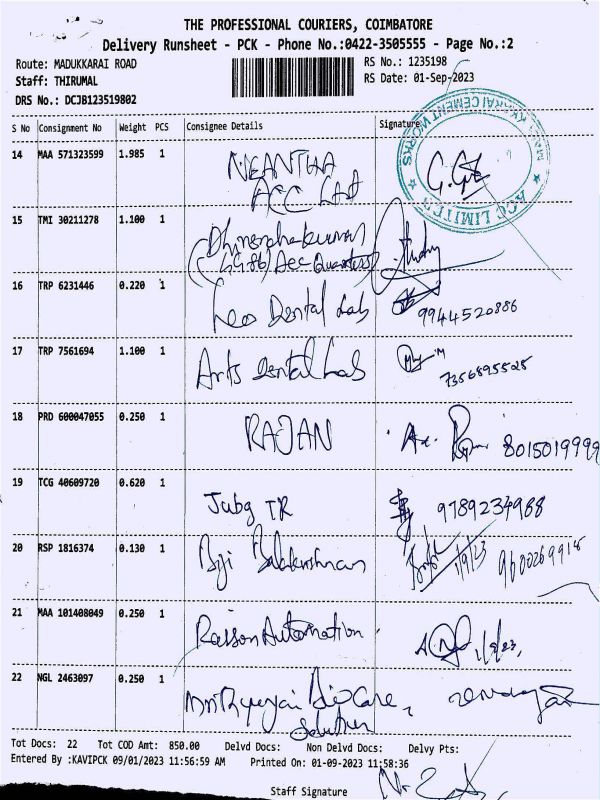 THE PROFESSIONAL COURIERS, COIMBATORE
Delivery Runsheet - PCK - Phone No.:0422-3505555 - Page No.:2
Route: MADUKKARAI ROAD
Staff: THIRUMAL
DRS No.: DCJB123519802
RS No.: 1235198
RS Date: 01-Sep-2023
S No Consignment No Weight PCS Consignee Details Signature
ACC LIMITED
CEMENT WORKS
14 MAA 571323599 1.985 1
ACC Ltd
15 TMI 30211278 1.100 1
16 TRP 6231446 0.220 1 Leo Dental Lab 9944520886
17 TRP 7561694 1.100 1 Arts Dental Lab 7356895525
18 PRD 600047055 0.250 1 RAJAN 8015019999
19 TCG 40609720 0.620 1 Jubg TR 9789234988
20 RSP 1816374 0.130 1 Biji Balakrishnan 1/9/23 9600269918
21 MAA 101408049 0.250 1 Automation
22 NGL 2463097 0.250 1
Tot Docs: 22 Tot COD Amt: 850.00 Delvd Docs: Non Delvd Docs: Delvy Pts:
Entered By :KAVIPCK 09/01/2023 11:56:59 AM Printed On: 01-09-2023 11:58:36
Staff Signature